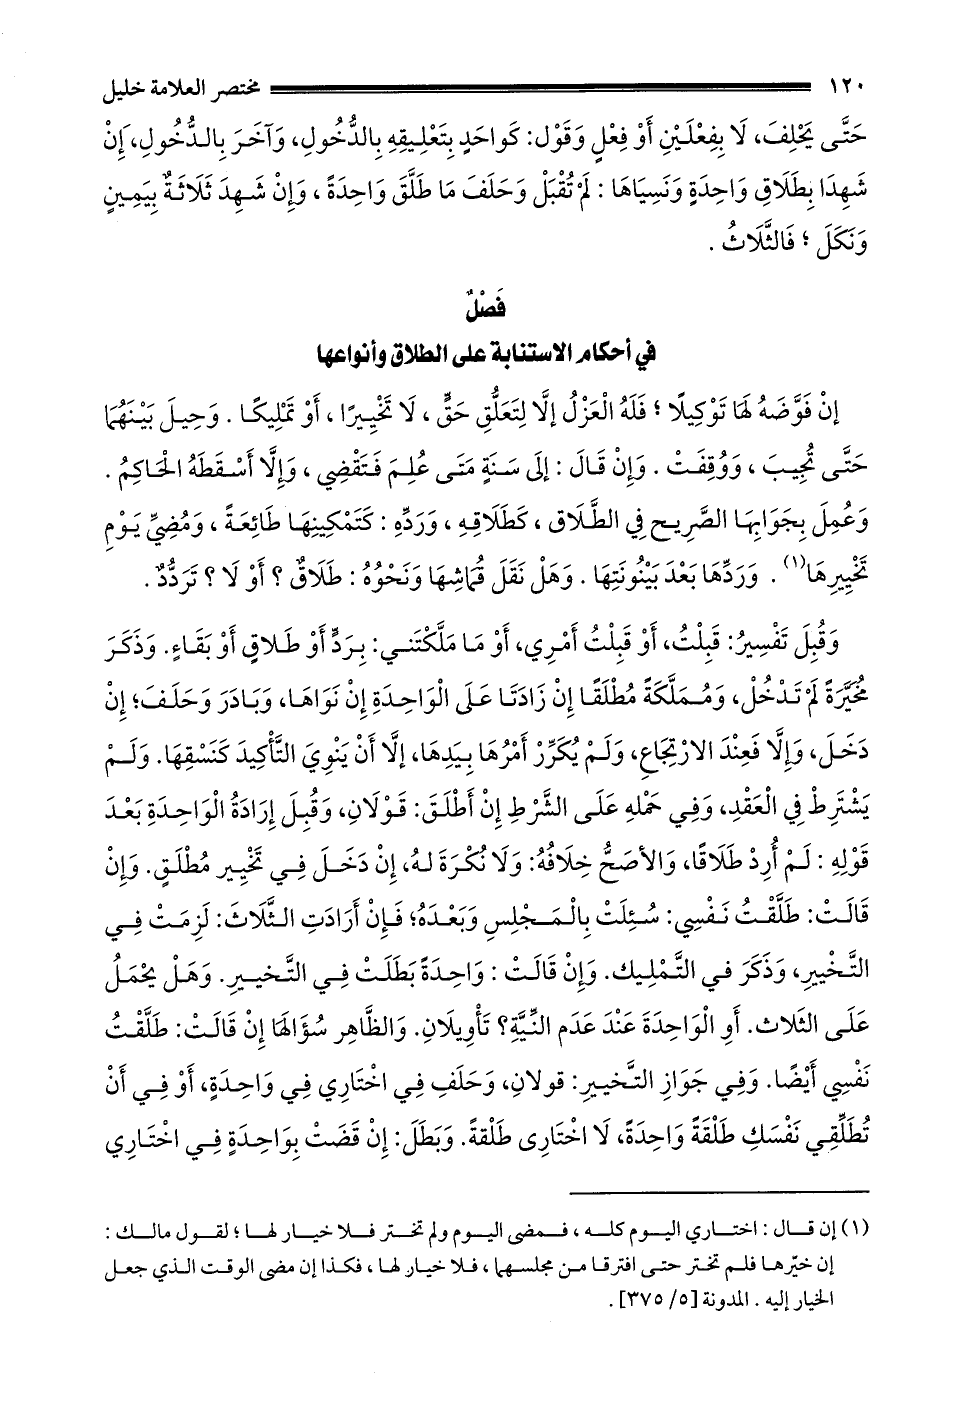 ١٢٠ مختصر العلامة خليل
حَتَّى يَحْلِفَ، لَا بِفِعْلَيْنِ أَوْ فِعْلٍ وَقَوْل: كَوَاحَدٍ بِتَعْلِيقِهِ بِالدُّخُولِ، وَآخَرَ بِالدُّخُولِ، إِنْ
شَهِدَا بِطَلَاقِ وَاحِدَةٍ وَنَسِيَاهَا : لَمْ تُقْبَلْ وَحَلَفَ مَا طَلَّقَ وَاحِدَةً ، وَإِنْ شَهِدَ ثَلَاثَةٌ بِيَمِينٍ
وَنَكَلَ ؛ فَالثَّلَاثُ .
فَصْلٌ
في أحكام الاستنابة على الطلاق وأنواعها
إِنْ فَوَّضَهُ لَهَا تَوْكِيلًا ؛ فَلَهُ الْعَزْلُ إِلَّا لِتَعَلُّقِ حَقٍّ ، لَا تَخْيِيرًا ، أَوْ تَمْلِيكًا . وَحِيلَ بَيْنَهُمَا
حَتَّى تُجِيبَ ، وَوُقِفَتْ . وَإِنْ قَالَ : إِلَى سَنَةٍ مَتَى عُلِمَ فَتَقْضِي ، وَإِلَّا أَسْقَطَهُ الْحَاكِمُ .
وَعُمِلَ بِجَوَابِهَا الصَّرِيحِ فِي الطَّلَاقِ ، كَطَلَاقِهِ ، وَرَدِّهِ : كَتَمْكِينِهَا طَائِعَةً ، وَمُضِيِّ يَوْمِ
تَخْيِيرِهَا(١) . وَرَدِّهَا بَعْدَ بَيْنُونَتِهَا . وَهَلْ نَقَلَ قُمَاشِهَا وَنَحْوُهُ : طَلَاقٌ ؟ أَوْ لَا ؟ تَرَدُّدٌ .
وَقُبِلَ تَفْسِيرُ: قَبِلْتُ، أَوْ قَبِلْتُ أَمْرِي، أَوْ مَا مَلَّكْتَنِي: بِرَدٍّ أَوْ طَلَاقٍ أَوْ بَقَاءٍ. وَذَكَرَ
مُخَيَّرَةً لَمْ تَدْخُلْ، وَمُمَلَّكَةً مُطْلَقًا إِنْ زَادَتَا عَلَى الْوَاحِدَةِ إِنْ نَوَاهَا، وَبَادَرَ وَحَلَفَ؛ إِنْ
دَخَلَ، وَإِلَّا فَعِنْدَ الارْتِجَاعِ، وَلَمْ يُكَرِّرْ أَمْرُهَا بِيَدِهَا، إِلَّا أَنْ يَنْوِيَ التَّأْكِيدَ كَنَسْقِهَا. وَلَمْ
يَشْتَرِطْ فِي الْعَقْدِ، وَفِي حَمْلِهِ عَلَى الشَّرْطِ إِنْ أَطْلَقَ: قَوْلَانِ، وَقُبِلَ إِرَادَةُ الْوَاحِدَةِ بَعْدَ
قَوْلِهِ : لَمْ أُرِدْ طَلَاقًا، وَالأَصَحُّ خِلَافُهُ: وَلَا نُكْرَةَ لَهُ، إِنْ دَخَلَ فِي تَخْيِيرٍ مُطْلَقٍ. وَإِنْ
قَالَتْ: طَلَّقْتُ نَفْسِي: سُئِلَتْ بِالْمَجْلِسِ وَبَعْدَهُ؛ فَإِنْ أَرَادَتِ الثَّلَاثَ: لَزِمَتْ فِي
التَّخْيِيرِ، وَذَكَرَ فِي التَّمْلِيك. وَإِنْ قَالَتْ : وَاحِدَةً بَطَلَتْ فِي التَّخيير. وَهَلْ يَحْمَلُ
عَلَى الثَّلاث. أَوِ الْوَاحِدَةَ عَنْدَ عَدَمِ النِّيَّةِ؟ تَأْوِيلَانِ. وَالظَّاهِر سُؤَالهَا إِنْ قَالَتْ: طَلَّقْتُ
نَفْسِي أَيْضًا. وَفِي جَوَازِ التَّخيير: قولان، وَحَلَفَ فِي اخْتَارِي فِي وَاحِدَةٍ، أَوْ فِي أَنْ
تُطَلِّقِي نَفْسَكِ طَلْقَةً وَاحِدَةً، لَا اخْتَارِى طَلْقةً. وَبَطَلَ: إِنْ قَضَتْ بِوَاحِدَةٍ فِي اخْتَارِي
(١) إن قال : اختاري اليوم كله ، فمضى اليوم ولم تختر فلا خيار لها ؛ لقول مالك :
إن خيّرها فلم تختر حتى افترقا من مجلسها ، فلا خيار لها ، فكذا إن مضى الوقت الذي جعل
الخيار إليه . المدونة [٥/ ٣٧٥] .